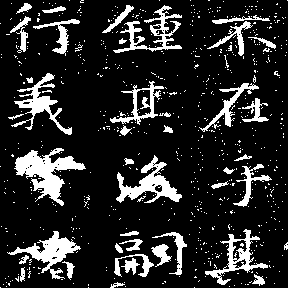 不在乎其
鍾其後嗣
行義質諸